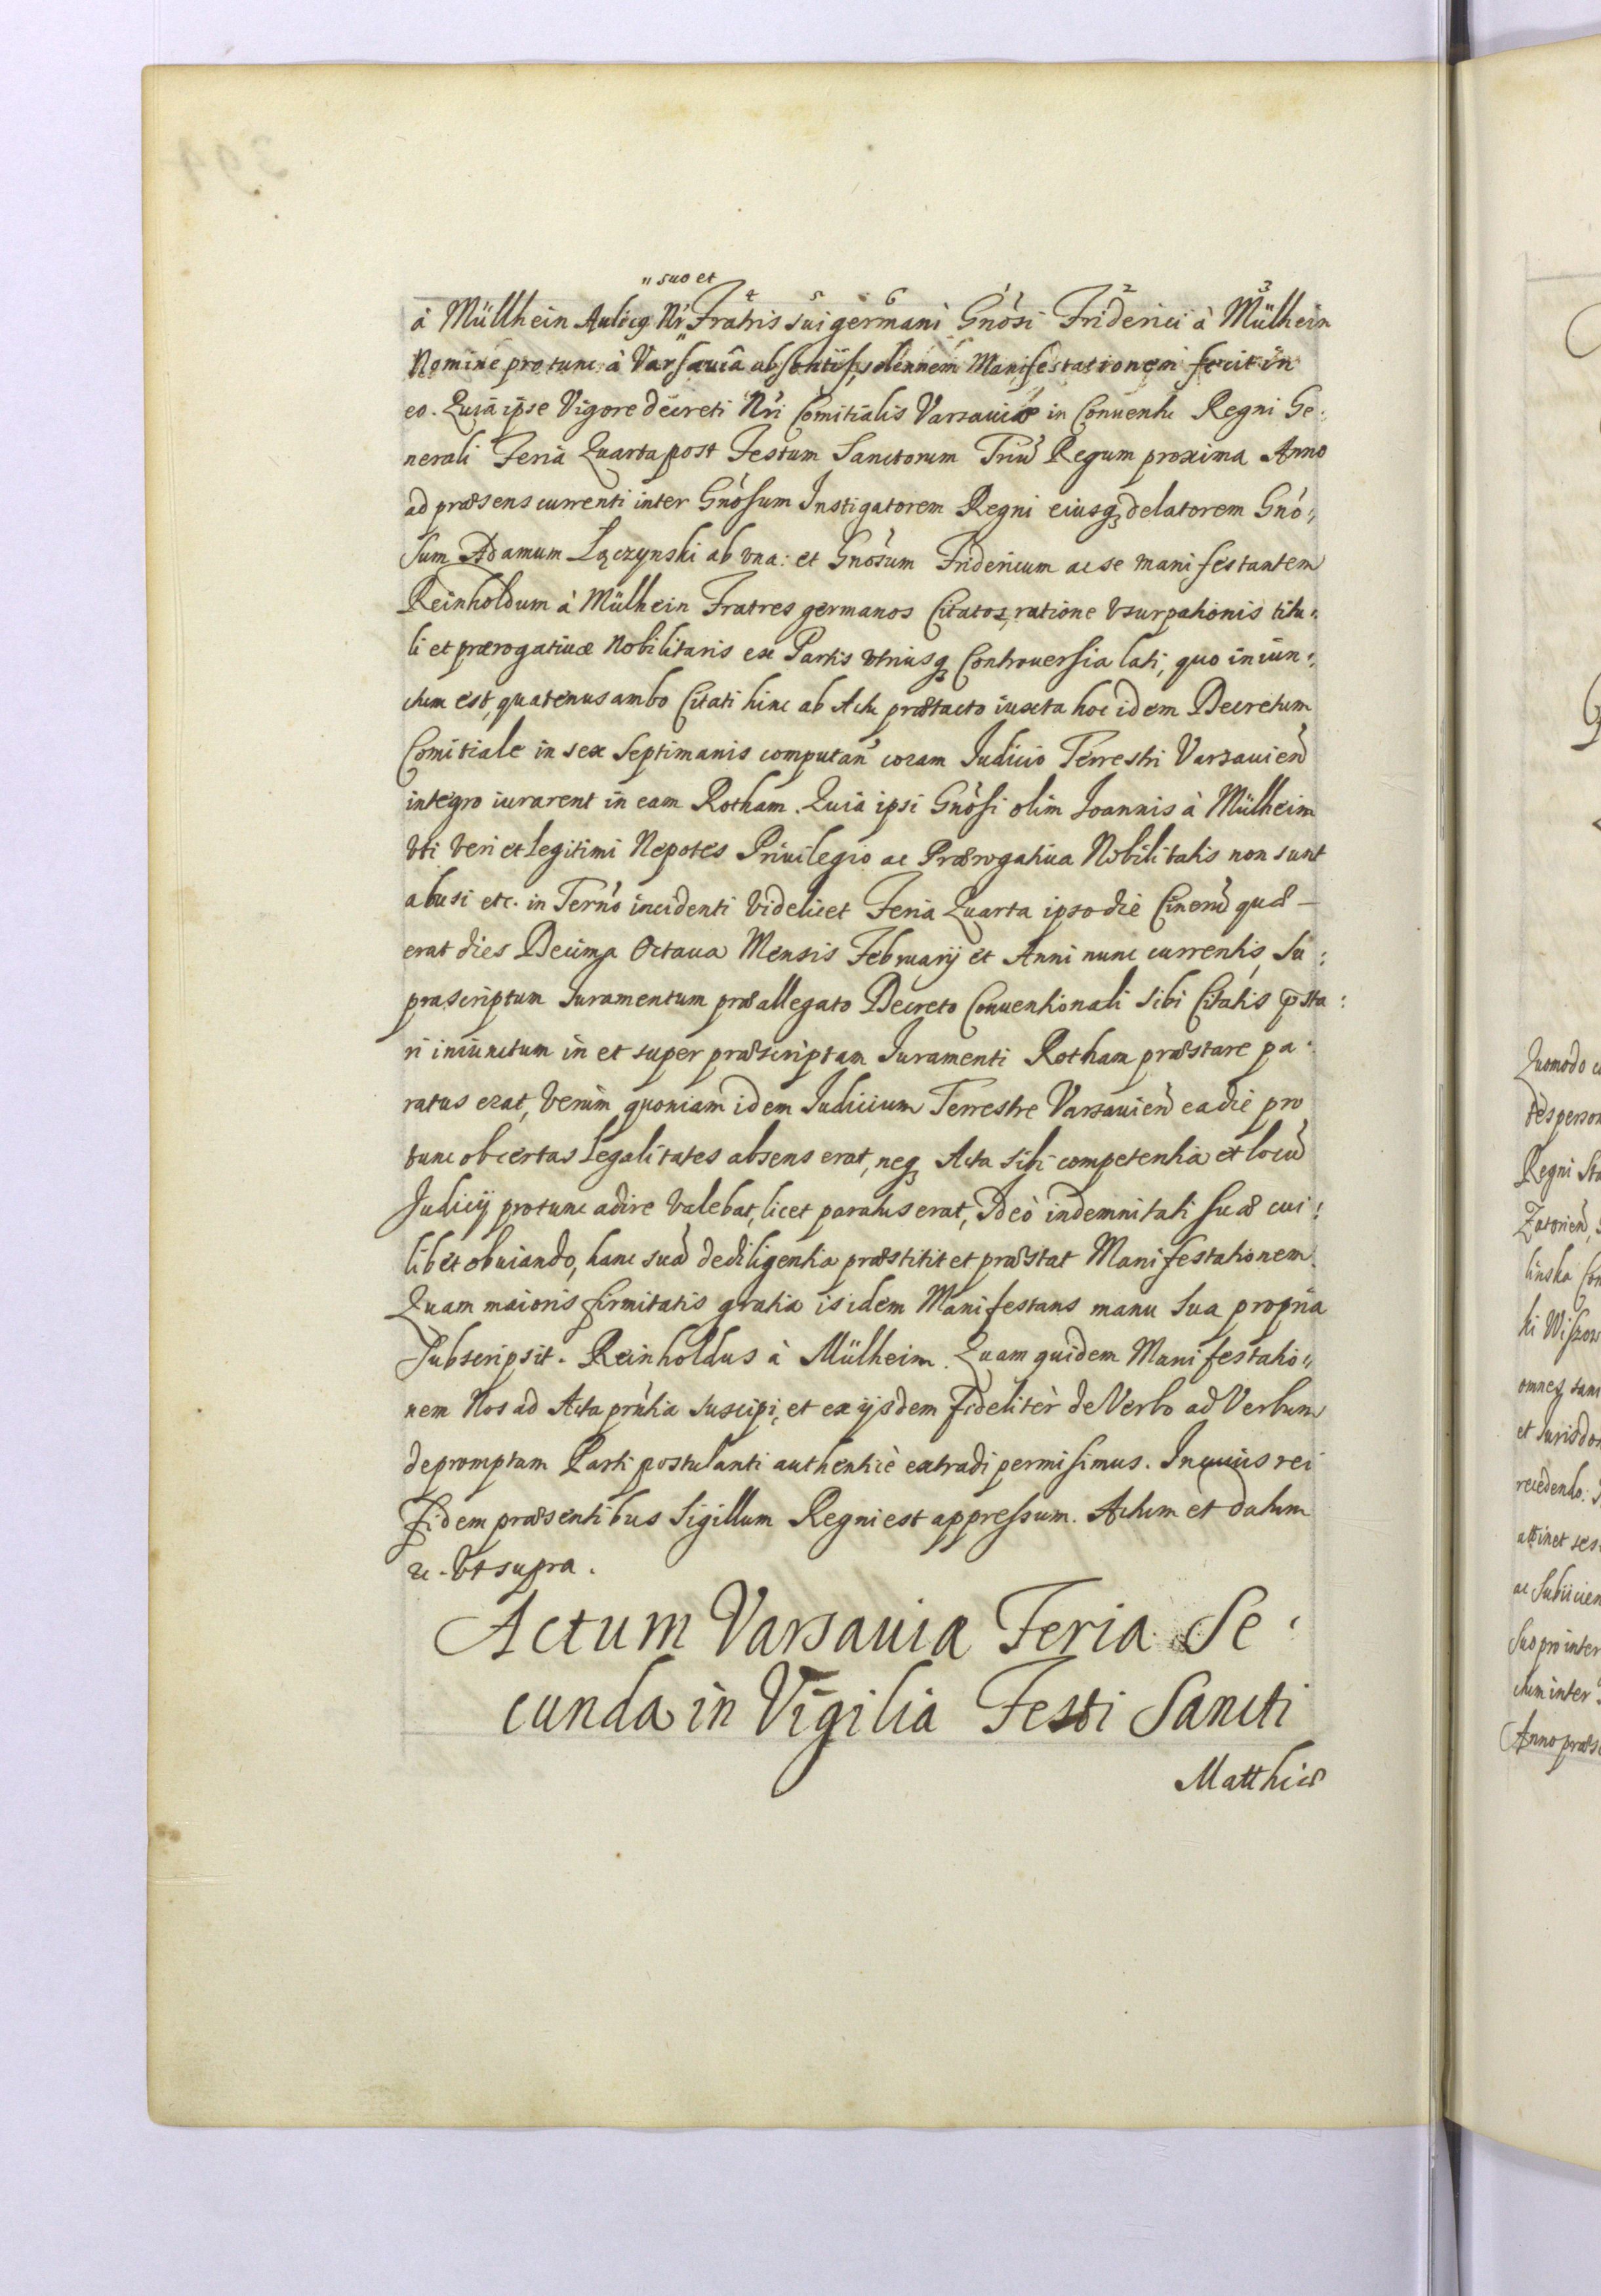 " suo et
4 5 6 1 2 3
à Müllhein Aulicq Nr Fratris sui germani Gnosi Friderici à Mülhein
Nomine protunc à Varsauia absentis, solennem Manifestationem fecit in
eo. Quia ipse Vigore decreti Nri Comitialis Varsauiæ in Conuentu Regni Ge:
nerali Feria Quarta post Festum Sanctorum Triũ Regum proxima Anno
ad præsens currenti inter Gnosum Instigatorem Regni eiusq delatorem Gno:
sum Adamum Łączynski ab vna: et Gnosum Fridericum ac se manifestantem
Reinholdum à Mülhein Fratres germanos Citatos, ratione vsurpationis titu:
li et prærogatiuæ Nobilitaris ex Partis vtriusq Controuersia lati, quo iniun:
ctum est, quatenus ambo Citati hinc ab Actu prætacto iuxta hoc idem Decretum
Comitiale in sex Septimanis computan coram Iudicio Terrestri Varsauien
integro iurarent in eam Rotham. Quia ipsi Gnosi olim Joannis à Mülheim
vti veri et legitimi Nepotes Priuilegio ac Prærogatiua Nobilitatis non sunt
abusi etc. in Terno incidenti videlicet Feria Quarta ipso die Cinerũ quæ –
erat dies Decima Octaua Mensis Februarij et Anni nunc currentis, Su:
prascriptum Iuramentum præallegato Decreto Conuentionali sibi Citatis p̄sta:
ri iniunctum in et super præscriptam Iuramenti Rotham præstare pa:
ratus erat, verùm quoniam idem Iudicium Terrestre Varsauien ea die pro
tunc ob certas legalitates absens erat, neq Acta sibi competentia et locũ
Judicij protunc adire valebat, licet paratus erat, Ideò indemnitati suæ cui:
libet obuiando, hanc suã de diligentia præstitit et præstat Manifestationem.
Quam maioris firmitatis gratia isidem Manifestans manu sua propria
subscripsit. Reinholdus à Mülheim. Quam quidem Manifestatio:
nem Nos ad Acta prntia suscipi, et ex ijsdem fidelitèr de Verbo ad Verbum
depromptam Parti postulanti authenticè extradi permisimus. In cuius rei
fidem præsentibus Sigillum Regni est appressum. Actum et datum
&c. vt supra.
Actum Varsauia Feria Se:
cunda in Vigilia Festi Sancti
Matthiæ